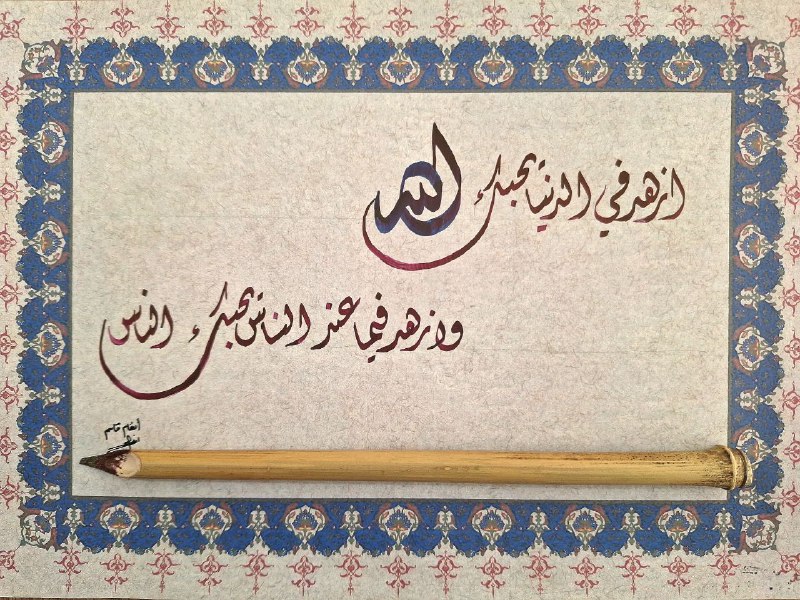 ازهد في الدنيا يحبك الله
وازهد فيما عند الناس يحبك الناس